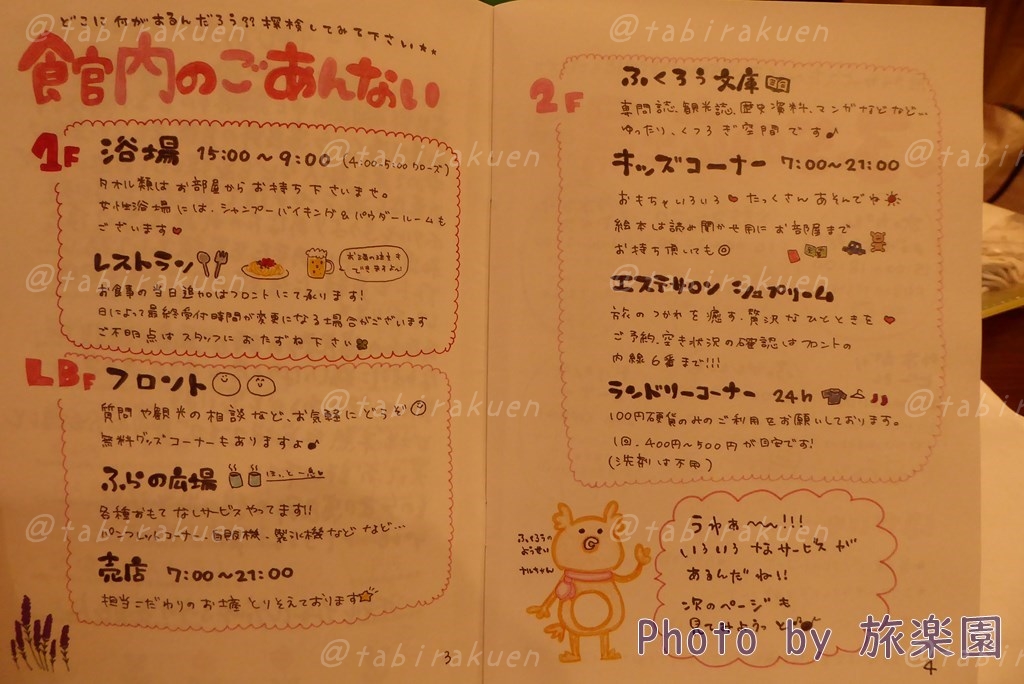 どこに何があるんだろう?? 探検してみて下さい**
館内のごあんない
1F 浴場 15:00〜9:00 (4:00-5:00クローズ)
タオル類はお部屋からお持ち下さいませ。
女性浴場には、シャンプーバイキング&パウダールームも
ございます♥
レストラン
お酒の注文もできますよ♪
お食事の当日追加はフロントにて承ります!
日によって最終受付時間が変更になる場合がございます
ご不明点はスタッフにおたずね下さい
LBF フロント
質問や観光の相談など、お気軽にどうぞ
無料グッズコーナーもありますよ♪
ふらの広場 ほっと一息♥
各種おもてなしサービスやってます!!
パンフレットコーナー、自販機、製氷機などなど…
売店 7:00〜21:00
担当こだわりのお土産とりそえております☆
3
2F
ふくろう文庫
専門誌、観光誌、歴史資料、マンガなどなど…
ゆったり、くつろぎ空間です♪
キッズコーナー 7:00〜21:00
おもちゃいろいろ♥たっくさんあそんでね
絵本は読み聞かせ用にお部屋まで
お持ち頂いても◎
エステサロン シュプリーム
旅のつかれを癒す、贅沢なひとときを♥
ご予約、空き状況の確認はフロントの
内線6番まで!!!
ランドリーコーナー 24h
100円硬貨のみのご利用をお願いしております。
1回、400円〜500円が目安です!
(洗剤は不用)
ふくろうの
ようせい
ナルちゃん
うわぁ〜〜!!!
いろいろなサービスが
あるんだね!!
次のページも
見てみようっと♪
4
@tabirakuen
Photo by 旅楽園